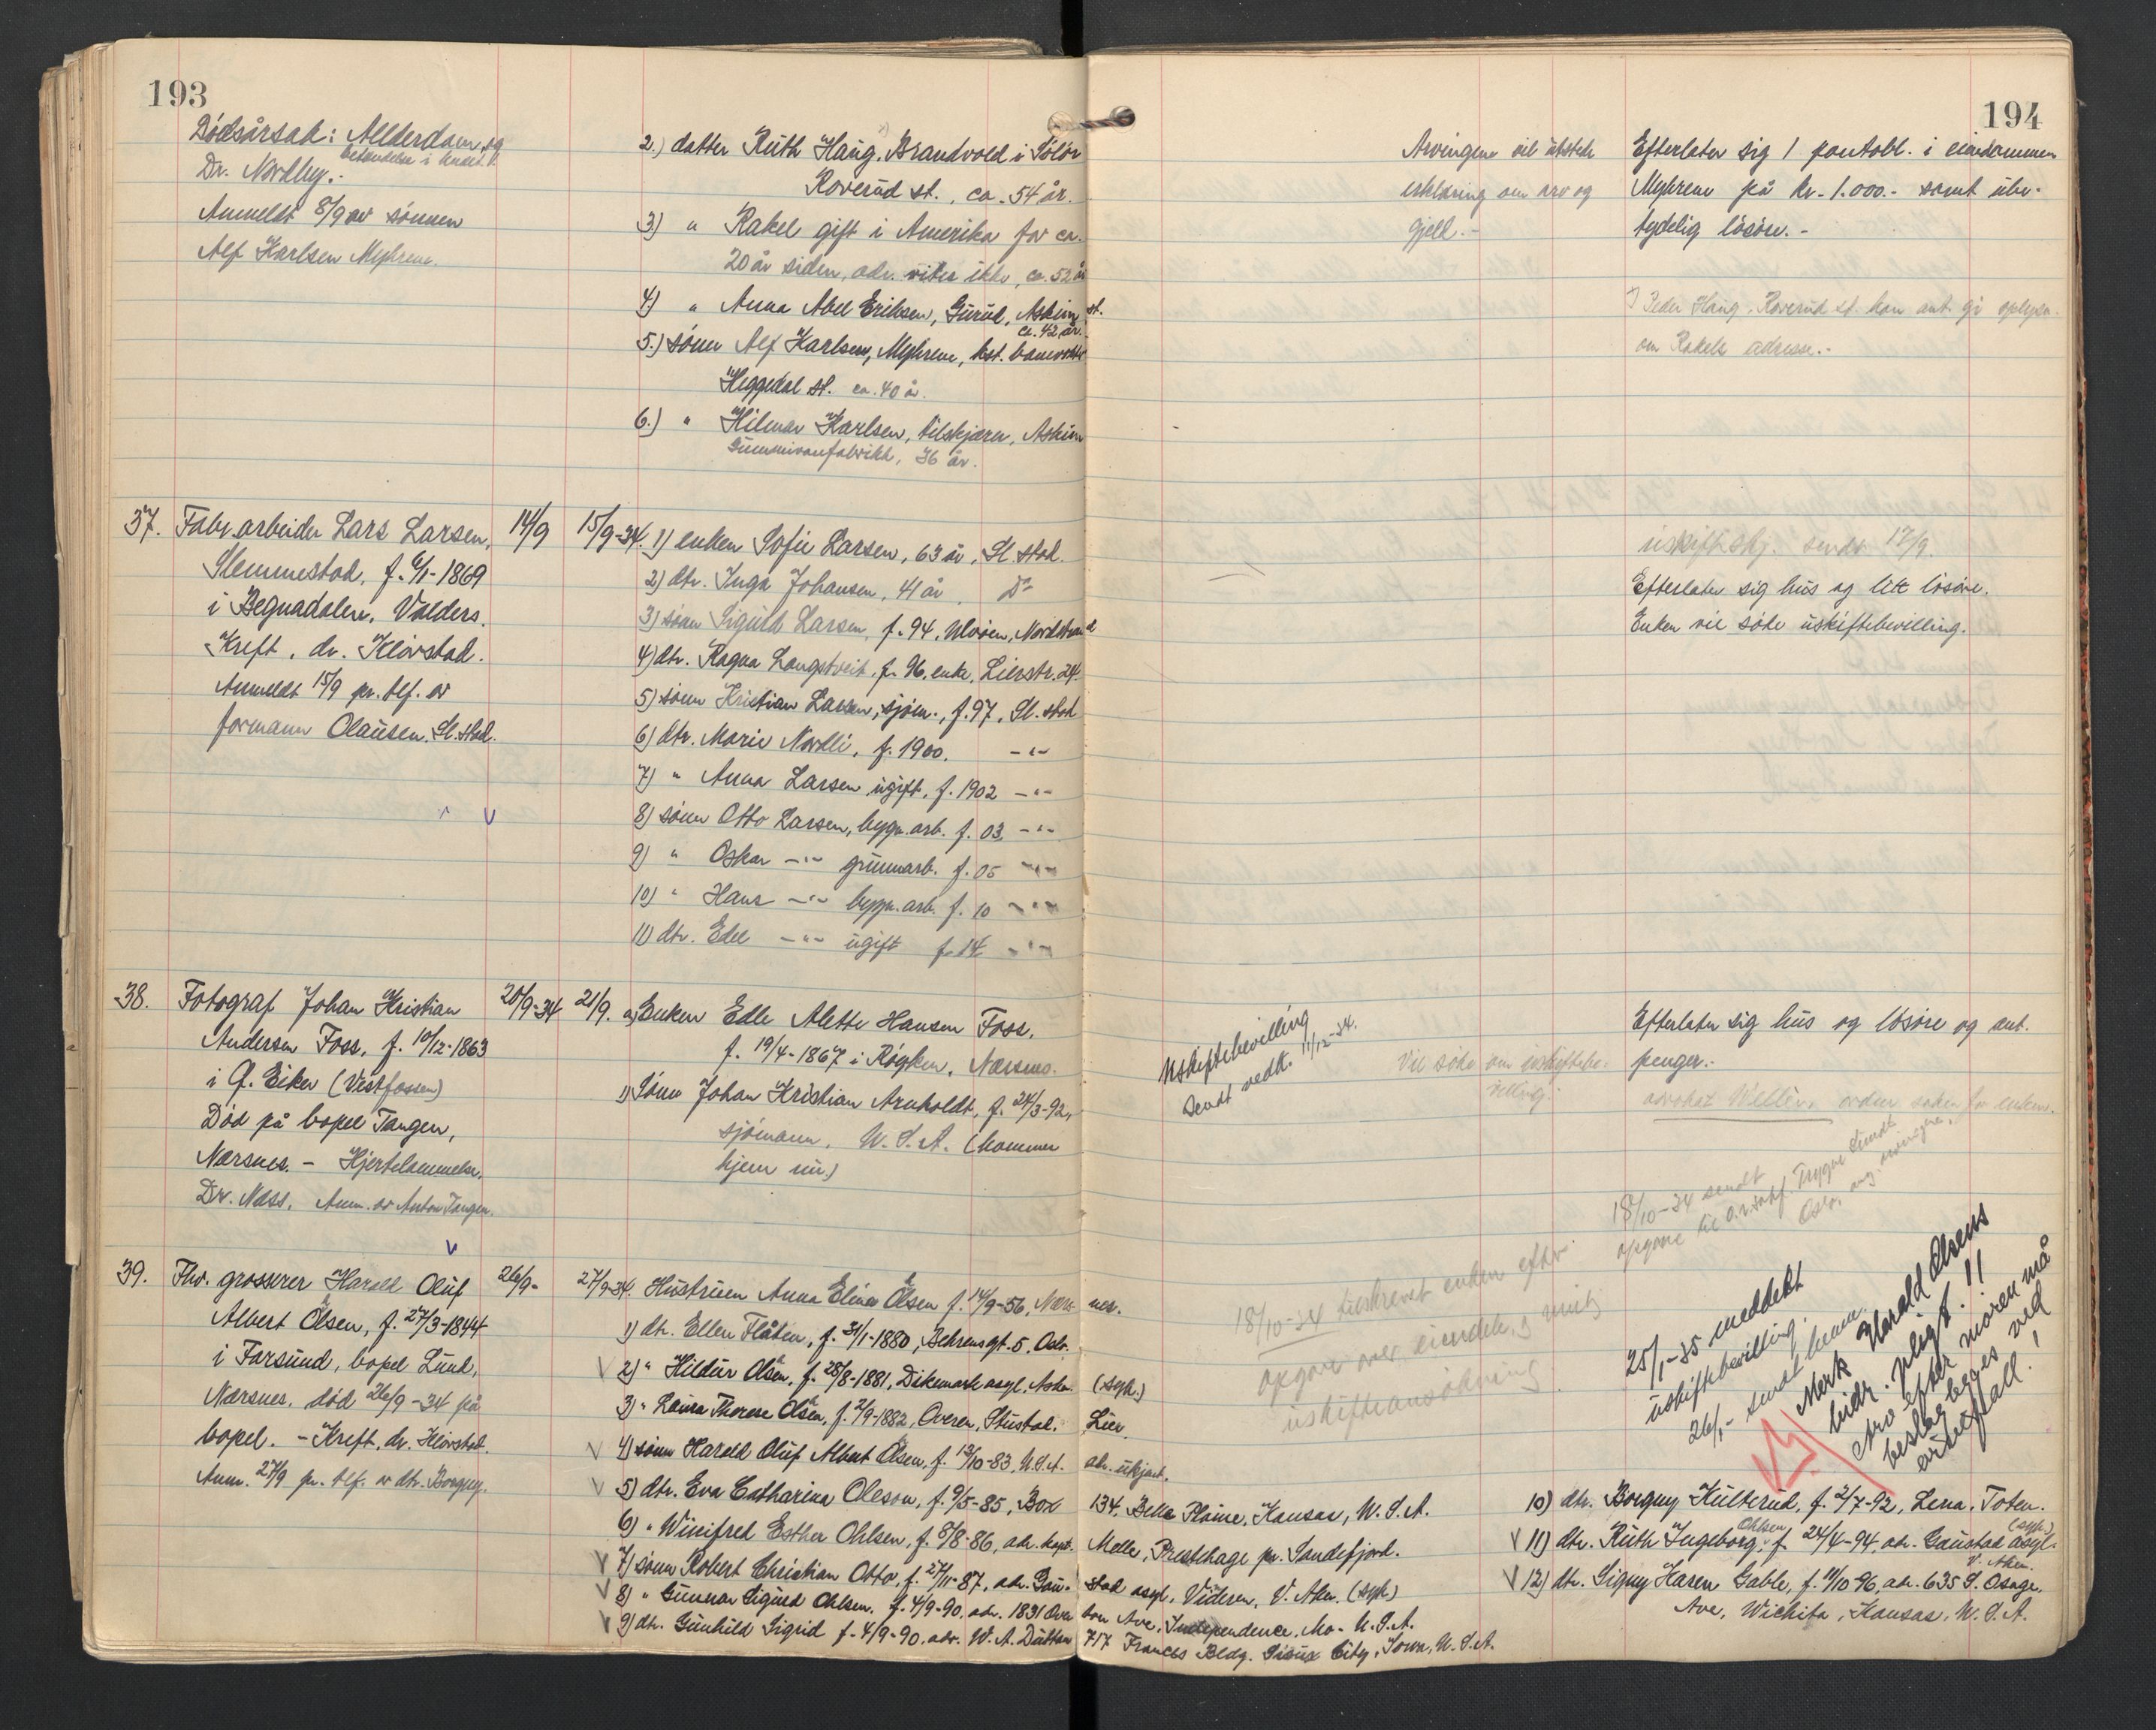 193
Dödsårsak: Allderdom, og
Dr. Nordby.-
Anmeldt 8/9 av sönnen
Alf Karlsen Myhrene.
2.) datter Ruth Haug, Brandvold i Solör
Roverud st., ca. 54 år.
3.) " Rakel gift i Amerika for ca.
20 år siden, adr. vites ikke, ca. 52 år
4.) " Anna Abel Eriksen, Gurud, Askim st.
ca. 42 år.
5.) sönn Alf Karlsen, Myhrene, kst. banevokter
Heggedal st. ca. 40 år.
6.) " Hilmar Karlsen, tilskjærer, Askim
Gummivarefabrikk, 36 år.
194
Arvingene vil utstede
erklæring om arv og
gjeld.-
Efterlater sig 1 pantobl. i eiendommen
Myhrene på kr. 1.000.- samt ube-
tydelig lösöre.-
Peder Haug, Roverud st. kan ant. gi oplysn.
om Rakels adresse.-
37. Fabr.arbeider Lars Larsen, 14/9 15/9-34.
Slemmestad, f. 6/1-1869
i Begnadalen, Valders.
Kreft, dr. Klövstad.
Anmeldt 15/9 pr. tlf. av
formann Olausen, Sl.stad.
1) enken Sofie Larsen, 63 år, Sl.stad.
2) dtr. Inga Johansen, 41 år, Do
3) sönn Sigurd Larsen, f. 94, Ulvöen, Nordstrand
4) dtr. Ragna Langstveit, f. 96, enke, Lierstr. 24.
5) sönn Kristian Larsen, sjöm., f. 97, Sl.stad
6) dtr. Marie Nordli, f. 1900. -"-
7) " Anna Larsen ugift, f. 1902 -"-
8) sönn Otto Larsen, bygn.arb. f. 03. -"-
9) " Oskar -"- grunnarb. f. 05 -"-
10) " Hans -"- bygn.arb. f. 10 -"-
11) dtr. Edel -"- ugift f. 14 -"-
uskiftesbg. sendt 17/9.
Efterlater sig hus og litt lösöre.
Enken vil söke uskiftebevilling.
38. Fotograf Johan Kristian 20/9-34 21/9.
Andersen Foss, f. 10/12-1863
i Ö. Eiker (Vestfossen)
Död på bopel Tangen,
Nærsnes. - Hjertelammelse.
Dr. Næss. Anm. av Anton Tangen.
a) Enken Edle Alette Hansen Foss,
f. 19/4-1867 i Röyken, Nærsnes.
1) Sönn Johan Kristian Arnholdt, f. 24/3-92,
sjömann, U.S.A. (kommer
hjem nu.)
Uskiftebevilling
sendt vedk. 11/12-34.
Vil söke om uskiftebe-
villing.
Efterlater sig hus og lösöre og ant.
penger.-
advokat Wellén, ordner saken for enken.
18/10-34 sendt
opgave til o.r.sakf. Trygve Lundt
Oslo, ang. arvingene.
39. Fhv. grosserer Harald Oluf 26/9- 27/9-34.
Albert Olsen, f. 27/3-1844
i Farsund, bopel Lunk,
Nærsnes, död 26/9-34 på
bopel. - Kreft, dr. Klövstad.
Anm. 27/9 pr. tlf. av dtr. Borgny.
Hustruen Anna Elina Olsen f. 14/9-56, Nærsnes.
1) dtr. Ellen Flåten, f. 31/1-1880, Behrensgt. 5, Oslo.
2) " Hildur Olsen, f. 28/8-1881, Dikemark asyl, Asker. (syk.)
3) " Laura Therese Olsen, f. 2/9-1882, Overen, Skustad, Lier.
4) sönn Harald Oluf Albert Olsen, f. 13/10-83, U.S.A. adr. ukjent.
5) dtr. Eva Catharina Oleson, f. 9/5-85, Box 134, Belle Plaine, Kansas, U.S.A.
6) " Winifred Esther Ohlsen, f. 8/8-86, adr. kapt. Melle, Prestehage pr. Sandefjord.
7) sönn Robert Christian Otto, f. 27/11-87, adr. Gaustad asyl, Vinderen, V. Aker. (syk)
8) " Gunnar Sigurd Ohlsen, f. 4/9-90, adr. 1831 Overton Ave, Independence, Mo. U.S.A.
9) dtr. Gunhild Sigrid f. 4/9-90, adr. W. A. Dutton 717 Frances Bldg. Sioux City, Iowa, U.S.A.
18/10-34 tilskrevet enken efter
opgave over eiendele, og
uskifteansökning
25/1-35 meddelt
uskiftebevilling.
26/1- sendt henne.
Merk Harald Olsens
bidr. pligt.!!
Arv efter moren må
beslaglegges ved
evtuelt fall.!
10) dtr. Borgny Kulterud, f. 2/7-92, Lena, Toten.
11) dtr. Ruth Ingeborg Ohlsen, f. 24/4-94, adr. Gaustad asyl. (syk)
V. Aker.
12) dtr. Signy Karen Gable, f. 11/10-96, adr. 635 S. Osage.
Ave, Wichita, Kansas, U.S.A.